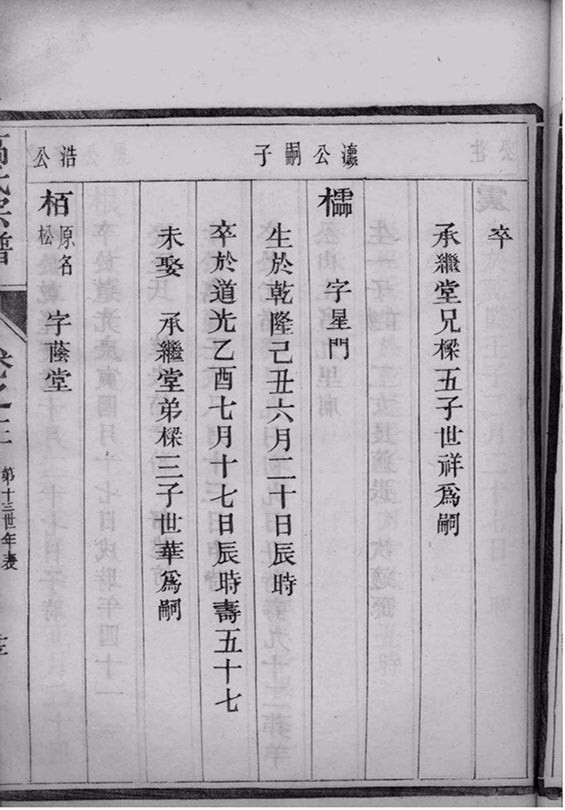 卒
承繼堂兄樑五子世祥爲嗣
瀍公嗣子
檽 字星門
生於乾隆己丑六月二十日辰時
卒於道光乙酉七月十七日辰時壽五十七
未娶 承繼堂弟樑三子世華爲嗣
浩公
栢 原名松 字蔭堂
氏宗譜
卷之三
第十三世年表